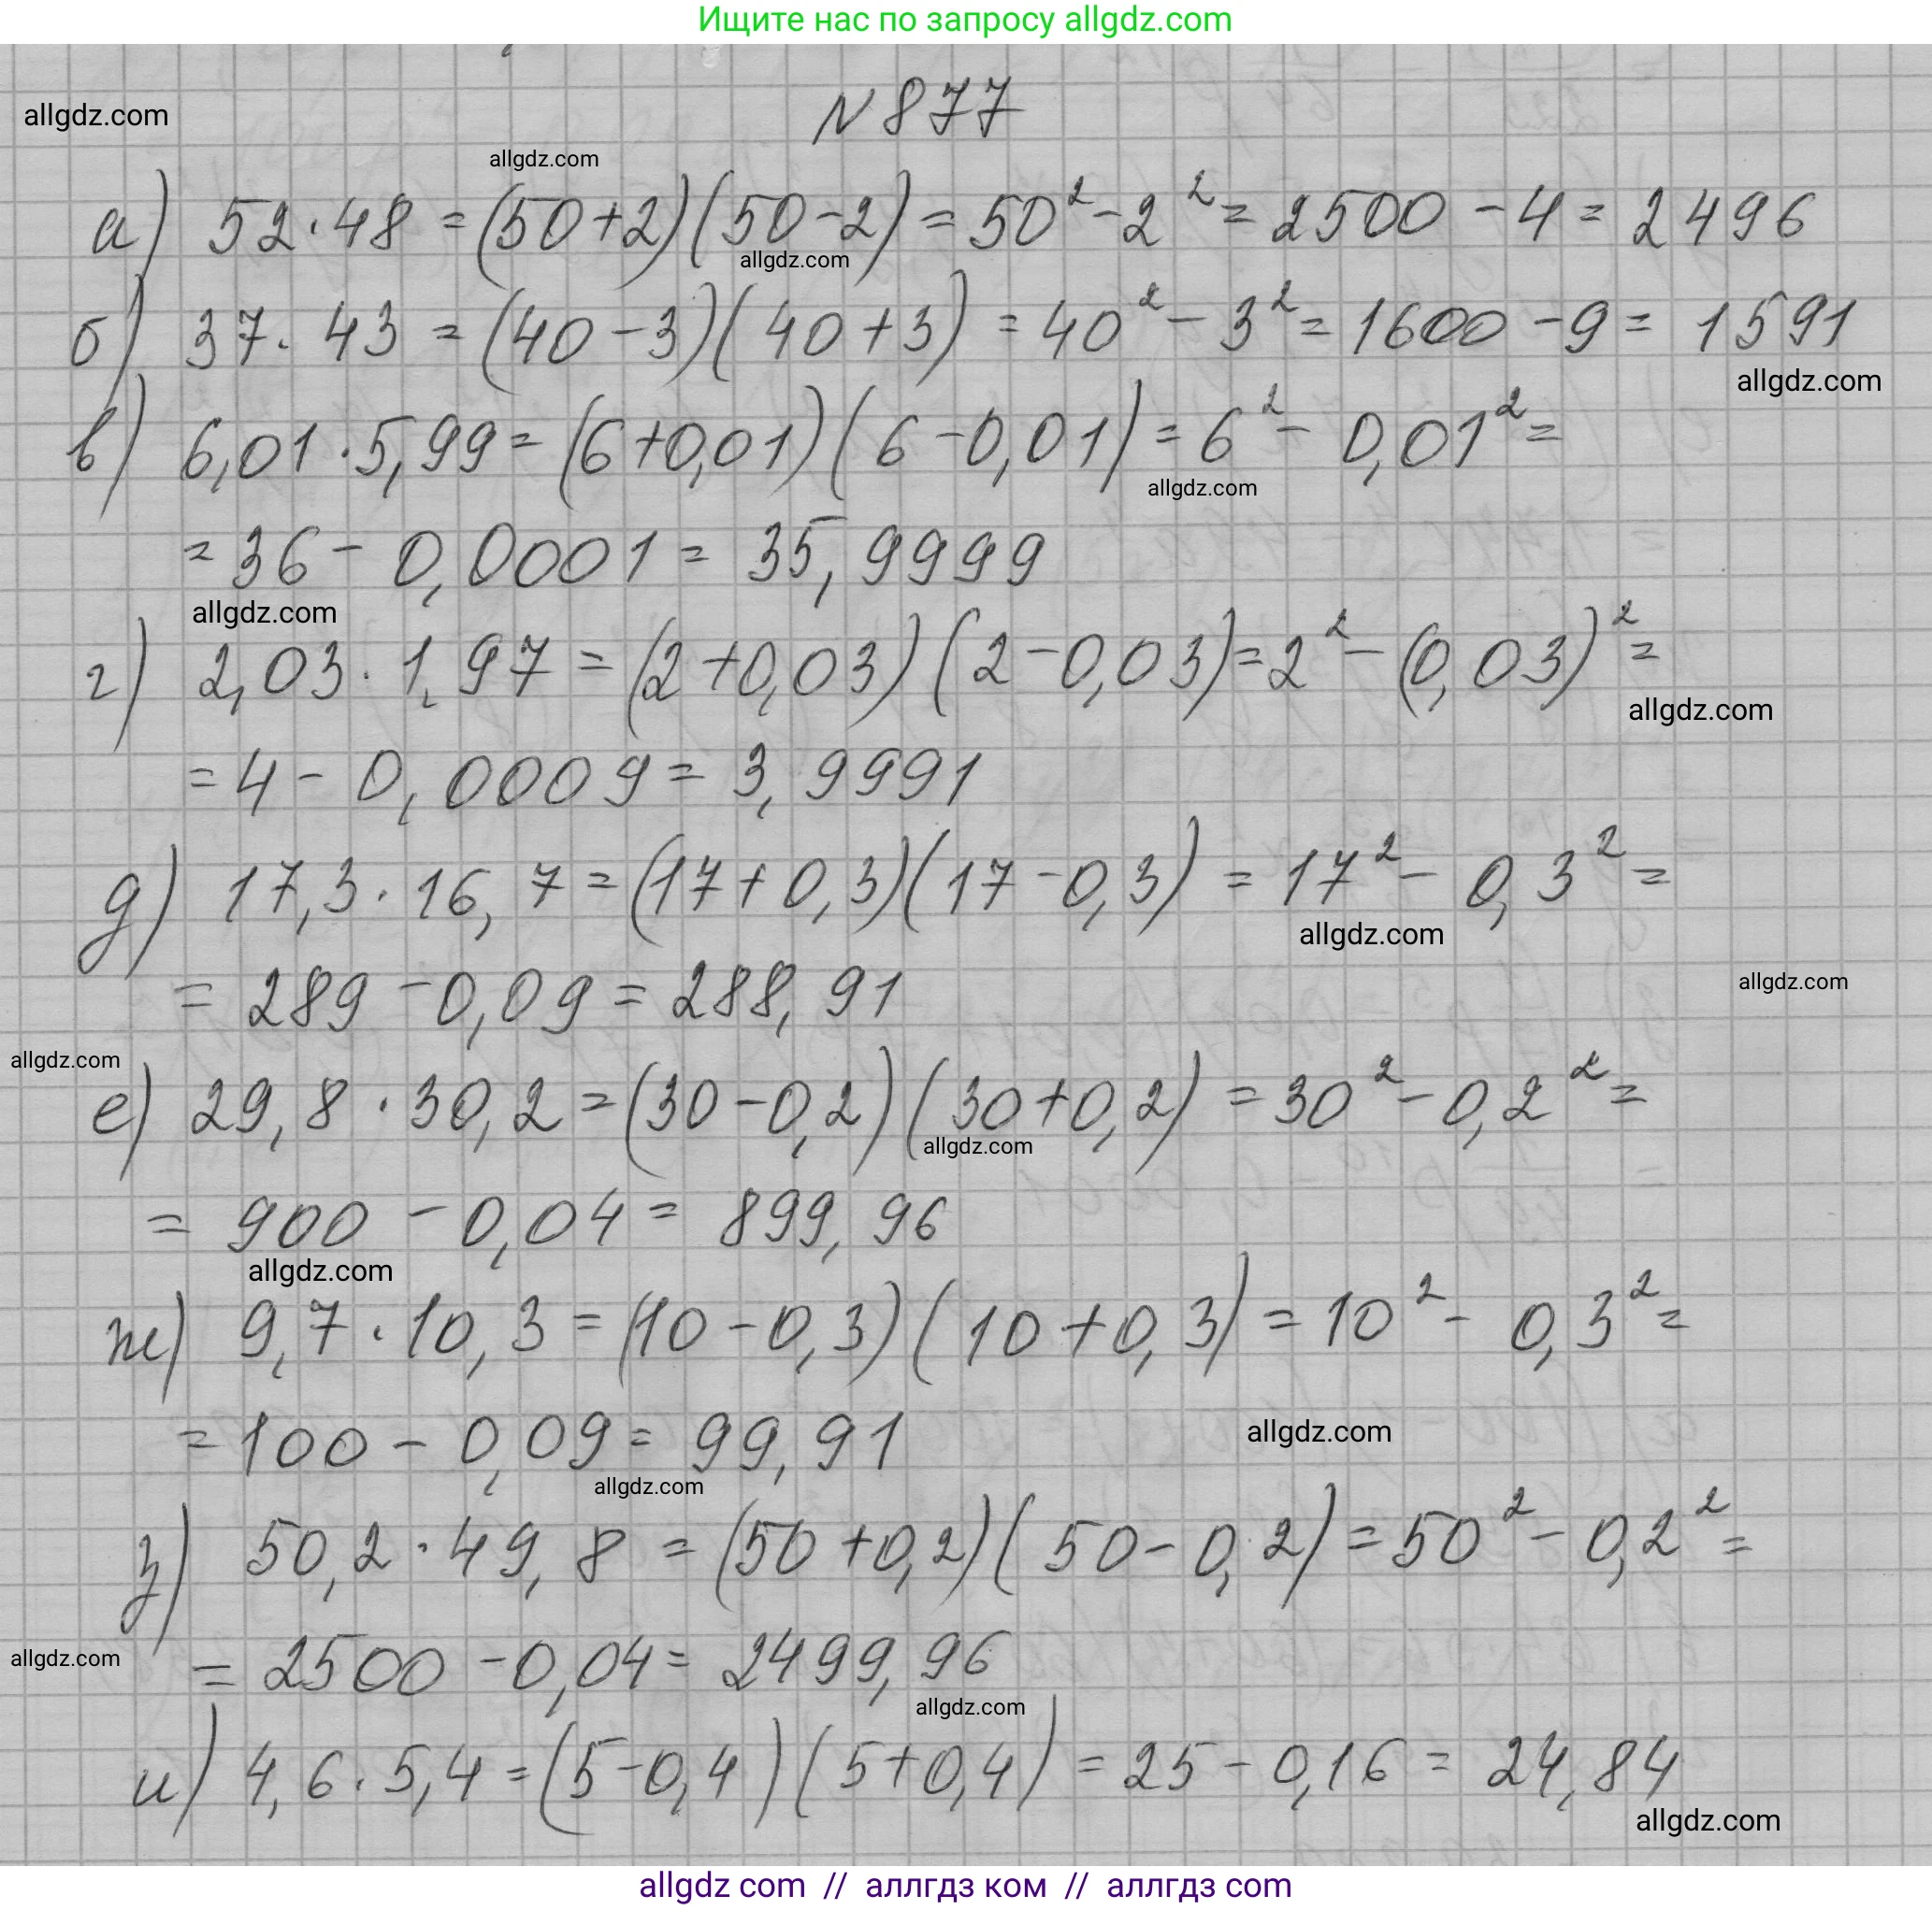 Ищите нас по запросу allgdz.com
№ 877
allgdz.com
allgdz.com
а) 52·48 = (50+2)(50-2) = 50² - 2² = 2500 - 4 = 2496
allgdz.com
б) 37·43 = (40-3)(40+3) = 40² - 3² = 1600 - 9 = 1591
allgdz.com
в) 6,01·5,99 = (6+0,01)(6-0,01) = 6² - 0,01² =
allgdz.com
= 36 - 0,0001 = 35,9999
allgdz.com
г) 2,03·1,97 = (2+0,03)(2-0,03) = 2² - (0,03)² =
allgdz.com
= 4 - 0,0009 = 3,9991
д) 17,3·16,7 = (17+0,3)(17-0,3) = 17² - 0,3² =
allgdz.com
allgdz.com
= 289 - 0,09 = 288,91
allgdz.com
е) 29,8·30,2 = (30-0,2)(30+0,2) = 30² - 0,2² =
allgdz.com
= 900 - 0,04 = 899,96
allgdz.com
ж) 9,7·10,3 = (10-0,3)(10+0,3) = 10² - 0,3² =
= 100 - 0,09 = 99,91
allgdz.com
allgdz.com
з) 50,2·49,8 = (50+0,2)(50-0,2) = 50² - 0,2² =
allgdz.com
= 2500 - 0,04 = 2499,96
allgdz.com
и) 4,6·5,4 = (5-0,4)(5+0,4) = 25 - 0,16 = 24,84
allgdz.com
allgdz com // аллгдз ком // аллгдз com